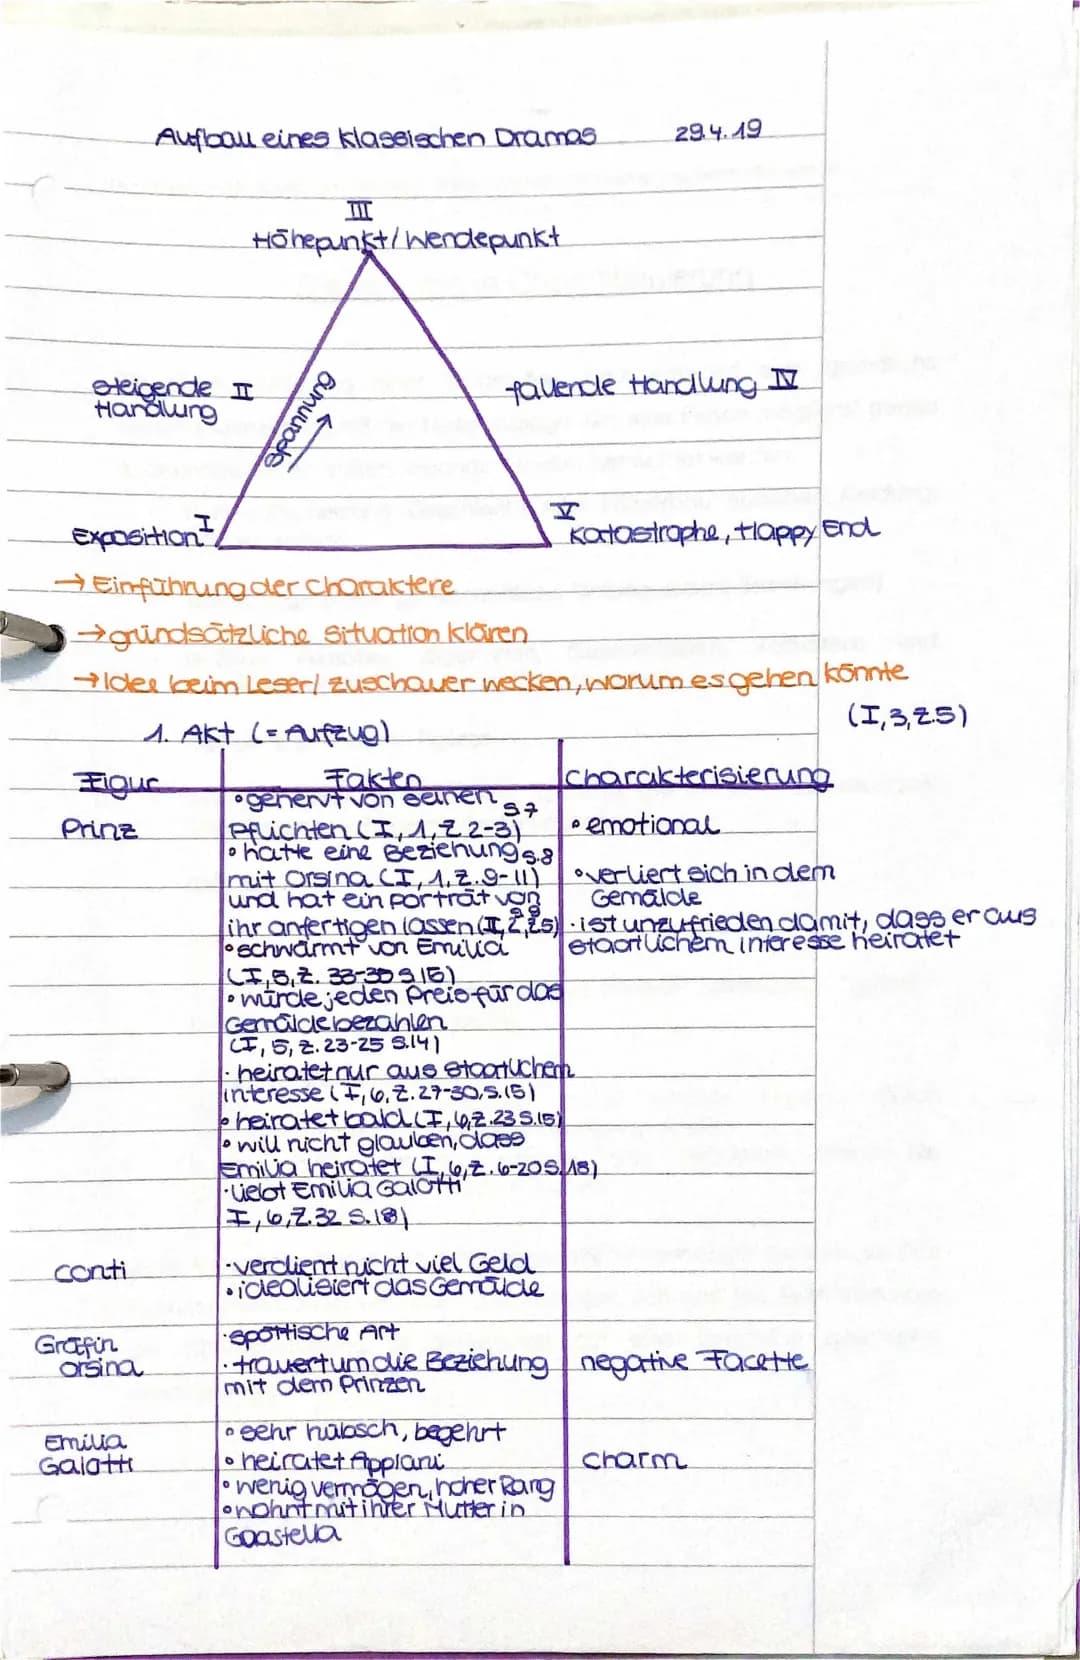 Aufbau eines klassischen Dramas 29.4.19
III
Höhepunkt/Wendepunkt
steigende II
Handlung
Spannung
→
fallende Handlung IV
Exposition I
V
Katastrophe, Happy End
→ Einführung der Charaktere
→ grundsätzliche Situation klären
→ Idee beim Leser/ Zuschauer wecken, worum es gehen könnte
(I,3,Z.5)
1. Akt (= Aufzug)
Figur Fakten Charakterisierung
Prinz
• genervt von seinen S7
Pflichten (I, 1, Z 2-3)
• hatte eine Beziehung S.8
mit Orsina (I, 1, Z. 9-11)
und hat ein porträt von
ihr anfertigen lassen (I, 2, Z5) S9
• schwärmt von Emilia
(I, 5, Z. 33-39 S 15)
• würde jeden Preis für das
Gemälde bezahlen
(I, 5, Z. 23-25 S.14)
· heiratet nur aus staatlichem
interesse (I, 6, Z. 27-30, S.15)
• heiratet bald (I, 6, Z. 23 S.15)
• will nicht glauben, dass
Emilia heiratet (I, 6, Z. 6-20 S.18)
· liebt Emilia Galotti
I, 6, Z. 32 S.18)
• emotional
• verliert sich in dem
Gemälde
· ist unzufrieden damit, dass er aus
staatlichem interesse heiratet
Conti
· verdient nicht viel Geld
• idealisiert das Gemälde
Gräfin
Orsina
· spöttische Art
· trauert um die Beziehung
mit dem Prinzen
negative Facette
Emilia
Galotti
• sehr hübsch, begehrt
• heiratet Applani
• wenig vermögen, hoher Rang
• wohnt mit ihrer Mutter in
Gaastella
Charm